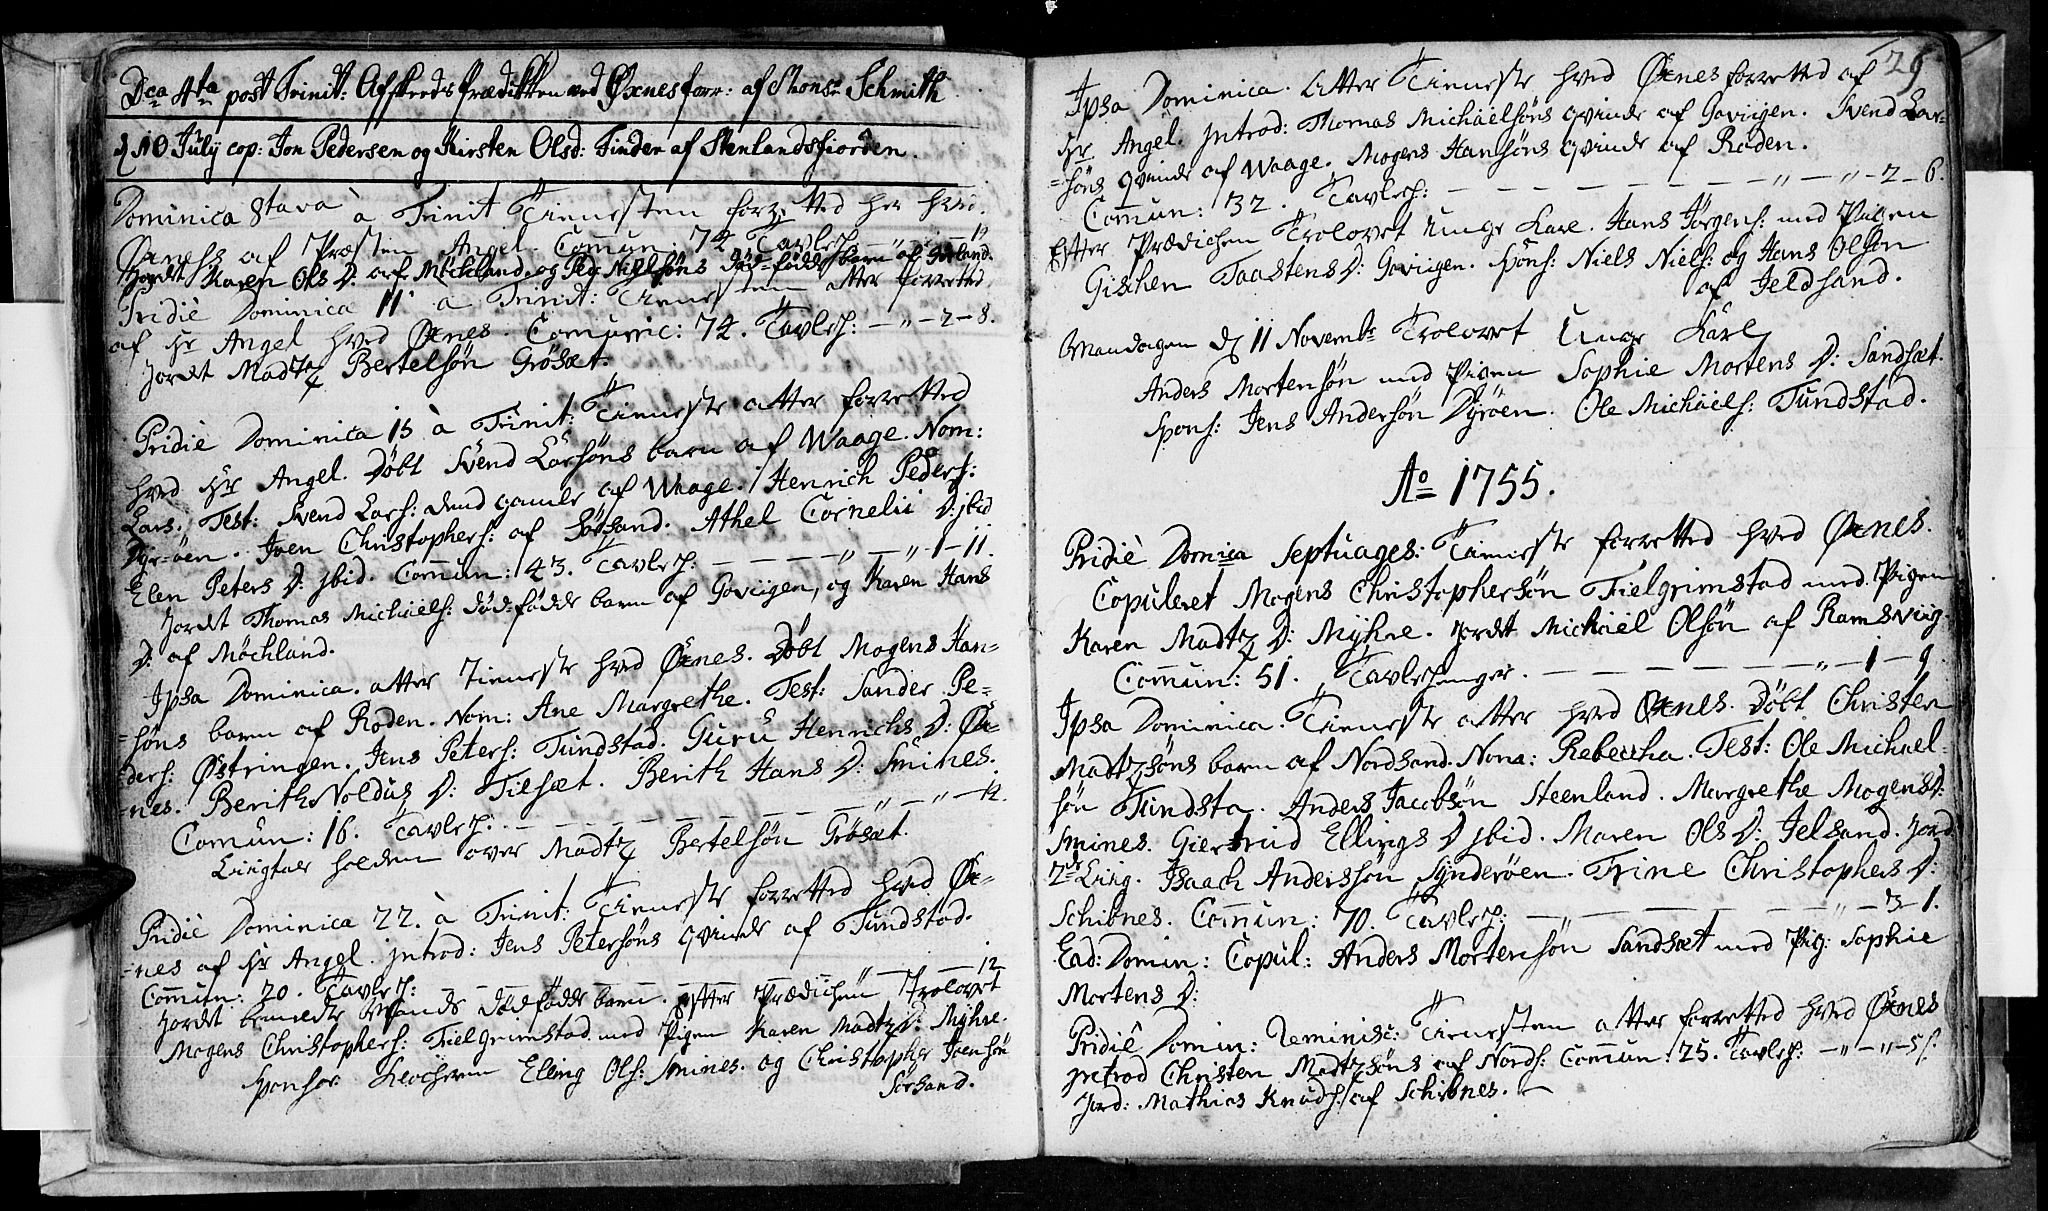 Dca 4ta post Trinit: Affskeeds Prædikken ved Øxnes forr: af Mons.r Schmith.
d 10 July cop: Jon Pedersen og Kirsten Olsd: Finder af Stenlandsfiorden.
Dominica 8tava à Trinit Tienesten forretted her hved
af Præsten Angel. Comun: 74 Tavlep:
Jordt Karen Ols D. af Möchland, og Peder Nielsöns död-födde barn af
Pridiè Dominica 11 à Trinit: Tienesten atter forretted
af Hr Angel hved Øxnes. Comunic: 74. Tavlep: — „ — 2 — 8.
Jordt Madtz Bertelsön Grösæt.
Pridiè Dominica 15 à Trinit: Tieneste atter forretted
hved Hr Angel. Döbt Svend Larsöns barn af Waage. Nom:
Lars. Test: Svend Lars: dend gamle af Waage. Henrich Peders:
Dyr-öen. Joen Christophers: af Sörsand. Athel Cornelii D: jbid
Elen Peters D: jbid. Comun: 43. Tavlep: — — — — „ — „ 1 — 11.
Jordt Thomas Michäels: död-födde barn af Goviigen, og Karen Hans
D: af Möchland.
Ipsa Dominica. atter Tieneste hved Øxnes. Döbt Mogens Han-
=söns barn af Röden. Nom: Ane Margrethe. Test: Sander Pe=
=ders: Østringen. Jens Peters: Tundstad. Guru Henrichs D: Øx-
=nes. Berith Noldus D: Tilsæt. Berith Hans D: Smines.
Comun: 16. Tavlep: — — — — — — — „ — „ — 12.
Liigtale holden over Madtz Bertelsön Grösæt.
Pridiè Dominica 22. à Trinit: Tieneste forretted hved Øx-
=nes af Hr Angel. jntrod: Jens Petersöns qvinde af Tundstad.
Comun: 20. Tavlep: — — — — — — — „ — — 12
Jordt bemeldte Mands dödfödde barn. Efter Prædichen Trolovet
Mogens Christophers: Fielgrimstad med Pigen Karen Madtz D: Myhre.
Sponsor Elling Ols: Smines. og Christopher Joensön
Sörsand.
29
Ipsa Dominica. Atter Tieneste hved Øxnes forretted af
Hr Angel. jntrod: Thomas Michäelsöns qvinde af Goviigen. Svend Lar-
=söns qvinde af Waage. Mogens Hansöns qvinde af Röden.
Comun: 32. Tavlep: — — — — — — — — — „ — „ — 2 — 6.
Efter Prædichen Trolovet Unge Karl. Hans Jörgens: med Pigen
Gischen Taastens D: Goviigen. Spons: Niels Niels: og Hans Olsön
af Jeldsand.
Mandagen d 11 Novembr Trolovet Unge Karl
Anders Mortensön med Pigen Sophie Mortens D: Sandsæt.
Spons: Jens Andersön Dyröen. Ole Michäels: Tundstad.
Ao 1755.
Pridiè Domica Septuages: Tieneste forretted hved Øxnes.
Copuleret Mogens Christophersön Fielgrimstad med Pigen
Karen Madtz D: Myhre. Jordt Michäel Olsön af Ramsviig.
Comun: 51. Tavlepenger. — — — — — — — „ — 1 — 9
Ipsa Dominica. Tieneste atter hved Øxnes. Döbt Christen
Madtzsöns barn af Nordsand. Nona: Rebeccha. Test: Ole Michael-
sön Tundsta. Anders Jacobsön Steenland. Margrethe Mogens D:
Smines. Giertrud Ellings D jbid. Maren Ols D: Jelsand. Jord
2de Liig. Isaach Anderssön Synderöen. Trine Christophers D:
Schibnes. Comun: 70. Tavlep: — „ — — — — — „ — 3 — 1.
Ead: Domin: Copul: Anders Mortensön Sandsæt med Pig: Sophie
Mortens D:
Pridiè Domin: Reminisc: Tienesten atter forretted hved Øxnes
jntrod Christen Madtzsöns af Nords: Comun: 25. Tavlep: — „ — „ — 5 s:
Jord: Mathias Knuds: af Schibnes. —